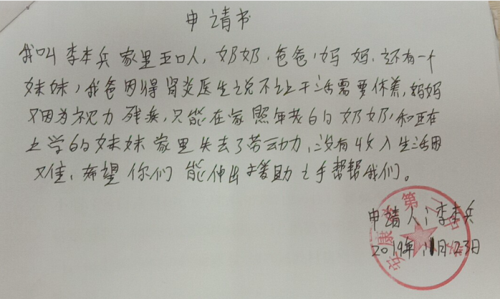 申请书
我叫李本兵家里五口人，奶奶，爸爸，妈妈，还有一个
妹妹，我爸因得肾炎医生说不让干活需要休养，妈妈
又因为视力残疾，只能在家照年老的奶奶，和正在
上学的妹妹家里失去了劳动力，没有收入生活困
难，希望你们能伸出援助之手帮帮我们。
申请人：李本兵
2019年11月23日